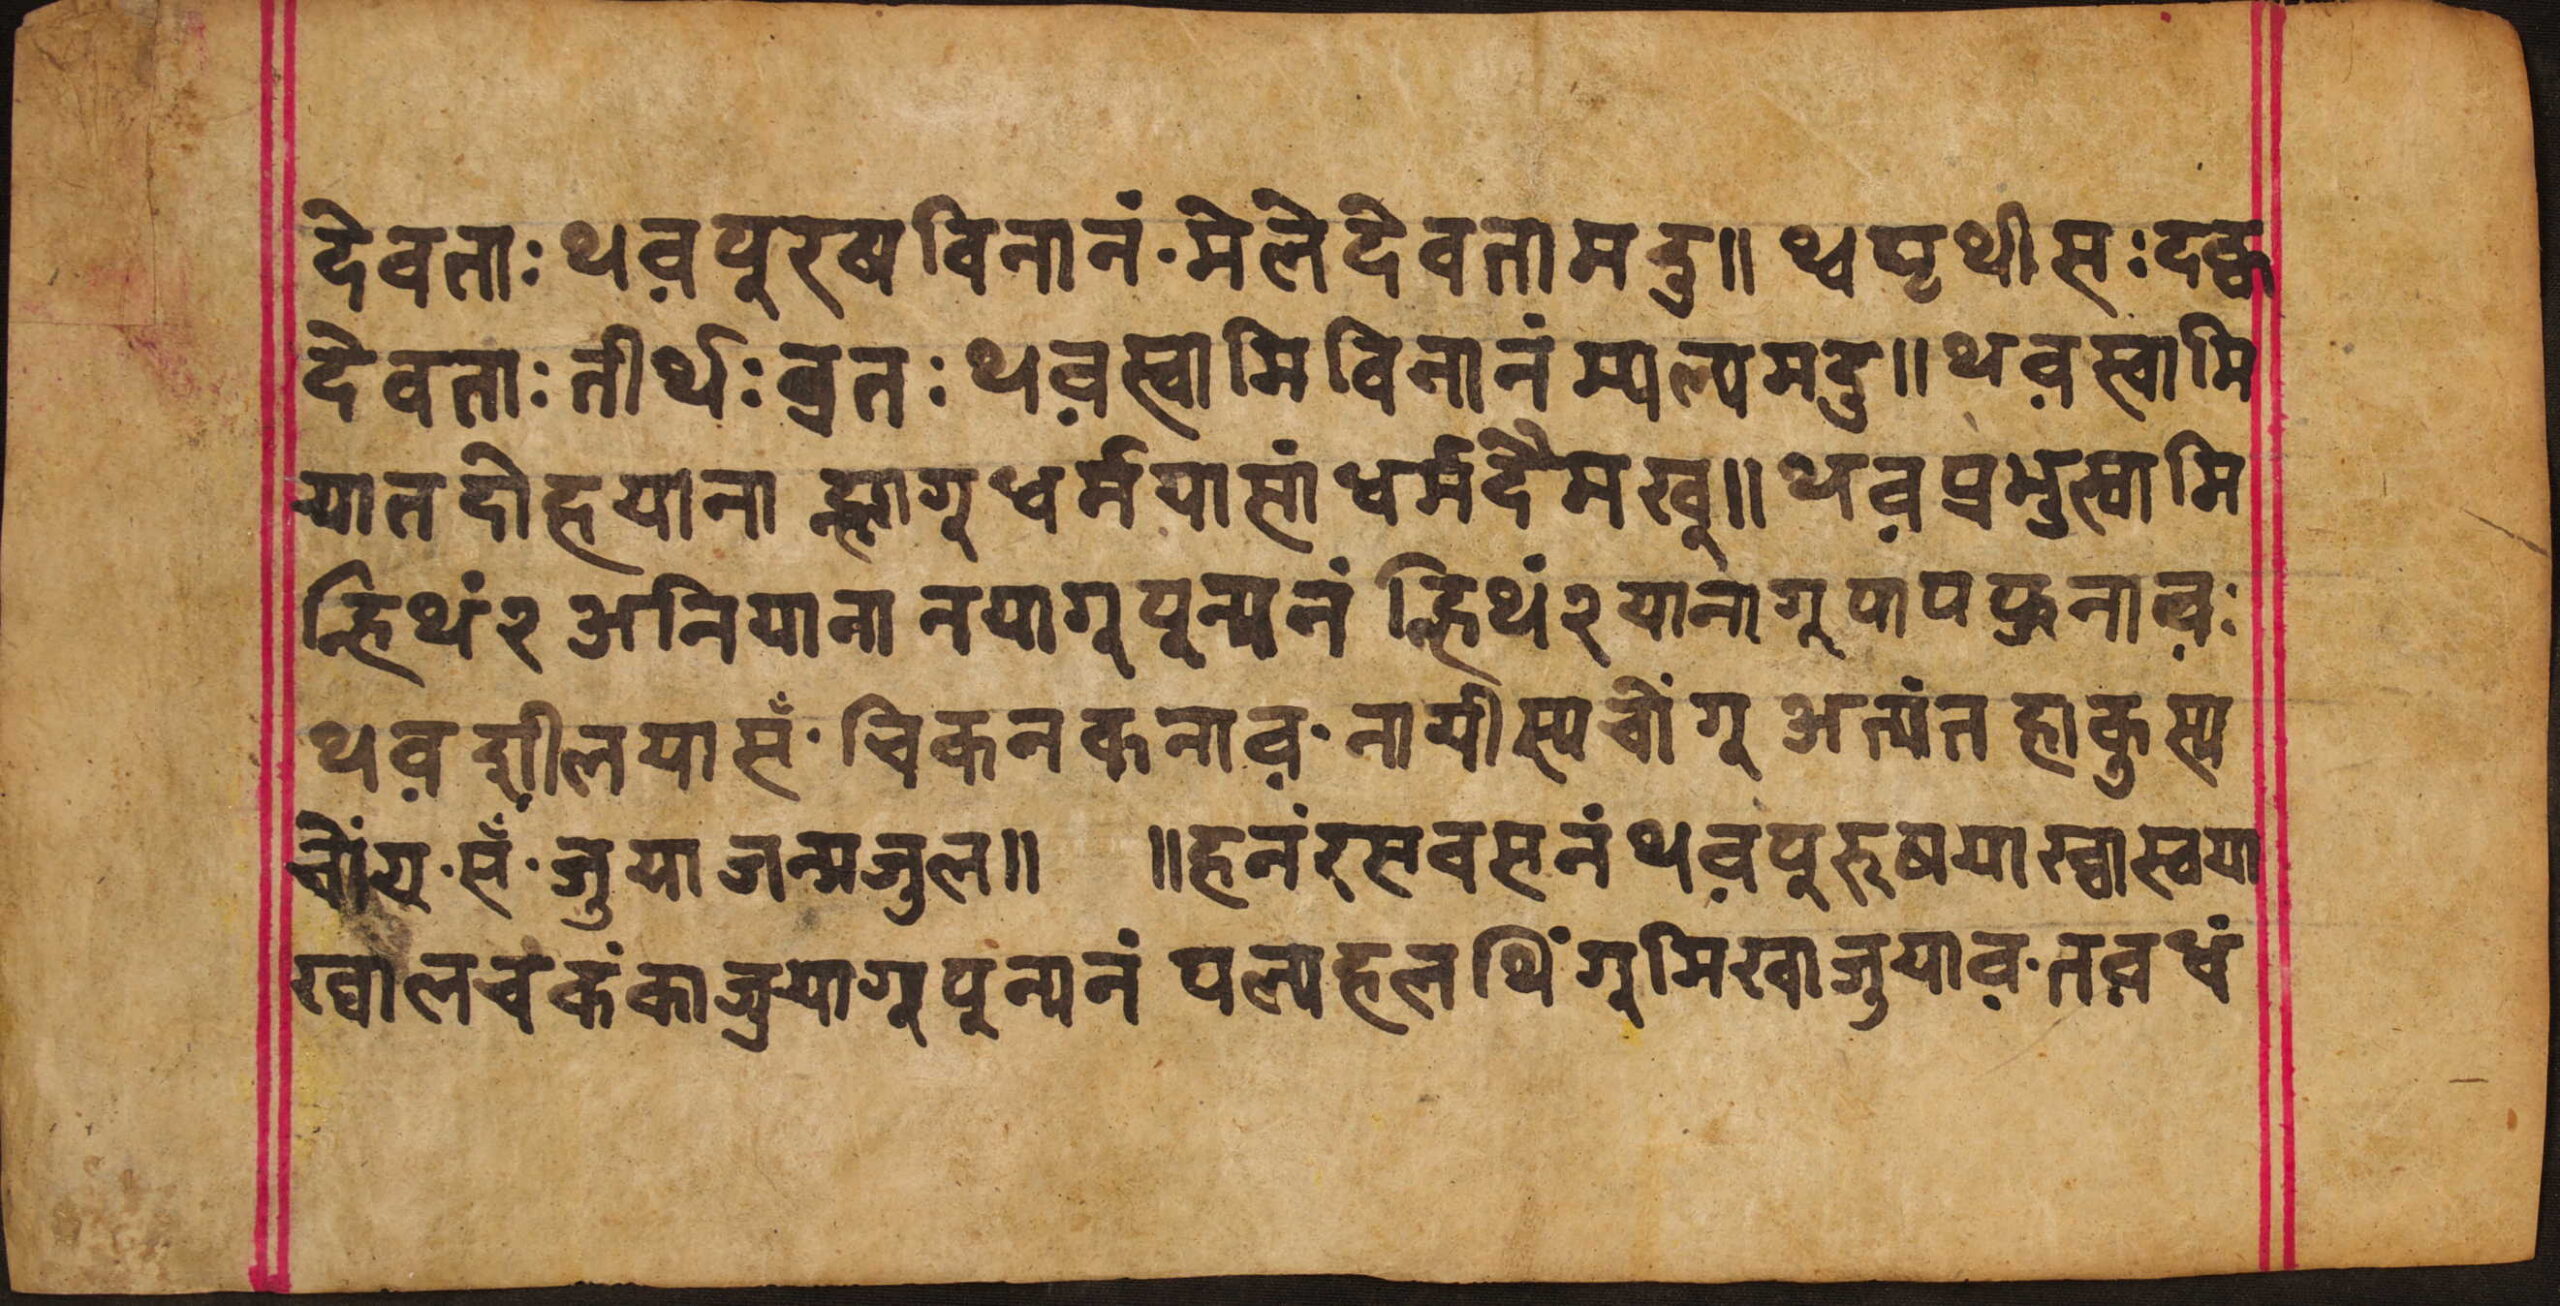 देवताः थव़ पूरषविनानं॰मेले देवता मदु॥ थ्व पृथीसः दक्व
देवताः तीर्थः व्रतः थव़ स्वामि विनानं म्यल्य मदु॥ थव़ स्वामि
यात दोहयाना ह्लागू धर्मयासां धर्म दै मखू॥ थव़ प्रभु स्वामि
न्हिथं२ अनियाना नयागू पून्यनं न्हिथं२ यानागू पाप फुनाव़ः
थव़ श़ीलयासँ॰ चिकनकनाव़॰ नायीस्य चोंगू अत्यंत हाकुस्य
चोंगू॰सँ॰जुया जन्म जुल॥ ॥हनं रसवसनं थव़ पूरुषया ख्वास्वया
ख्वाल चकंका जुयागू पून्यनं पल्यहल थिंगू मिखा जुयाव़॰तव़धं